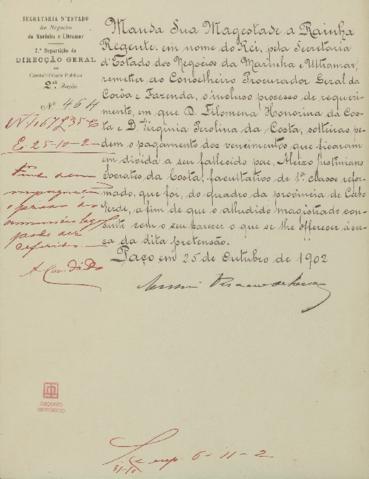 SECRETARIA D'ESTADO
dos Negocios
da Marinha e Ultramar
2.ª Repartição da
DIRECÇÃO GERAL
da
Contabilidade Publica
2ª Secção
Nº 464
Manda Sua Magestade a Rainha
Regente, em nome do Rei, pela Secretaria
d'Estado dos Negocios da Marinha e Ultramar,
remetter ao Conselheiro Procurador Geral da
Corôa e Fazenda, o incluso processo de requeri-
mento, em que D. Filomena Honorina da Cos-
ta e D. Virginia Carolina da Costa, solteiras pe-
dem o pagamento dos vencimentos que ficaram
em divida a seu fallecido pae, Justiniano
da Costa, facultativo de 1ª classe refor-
mado, que foi, do quadro da provincia de Cabo
Verde, a fim de que o alludido magistrado con-
sulte com o seu parecer o que se lhe offerecer ácer-
ca da dita pretensão.
Paço em 25 de Outubro de 1902
E. 25-10-2
6-11-2